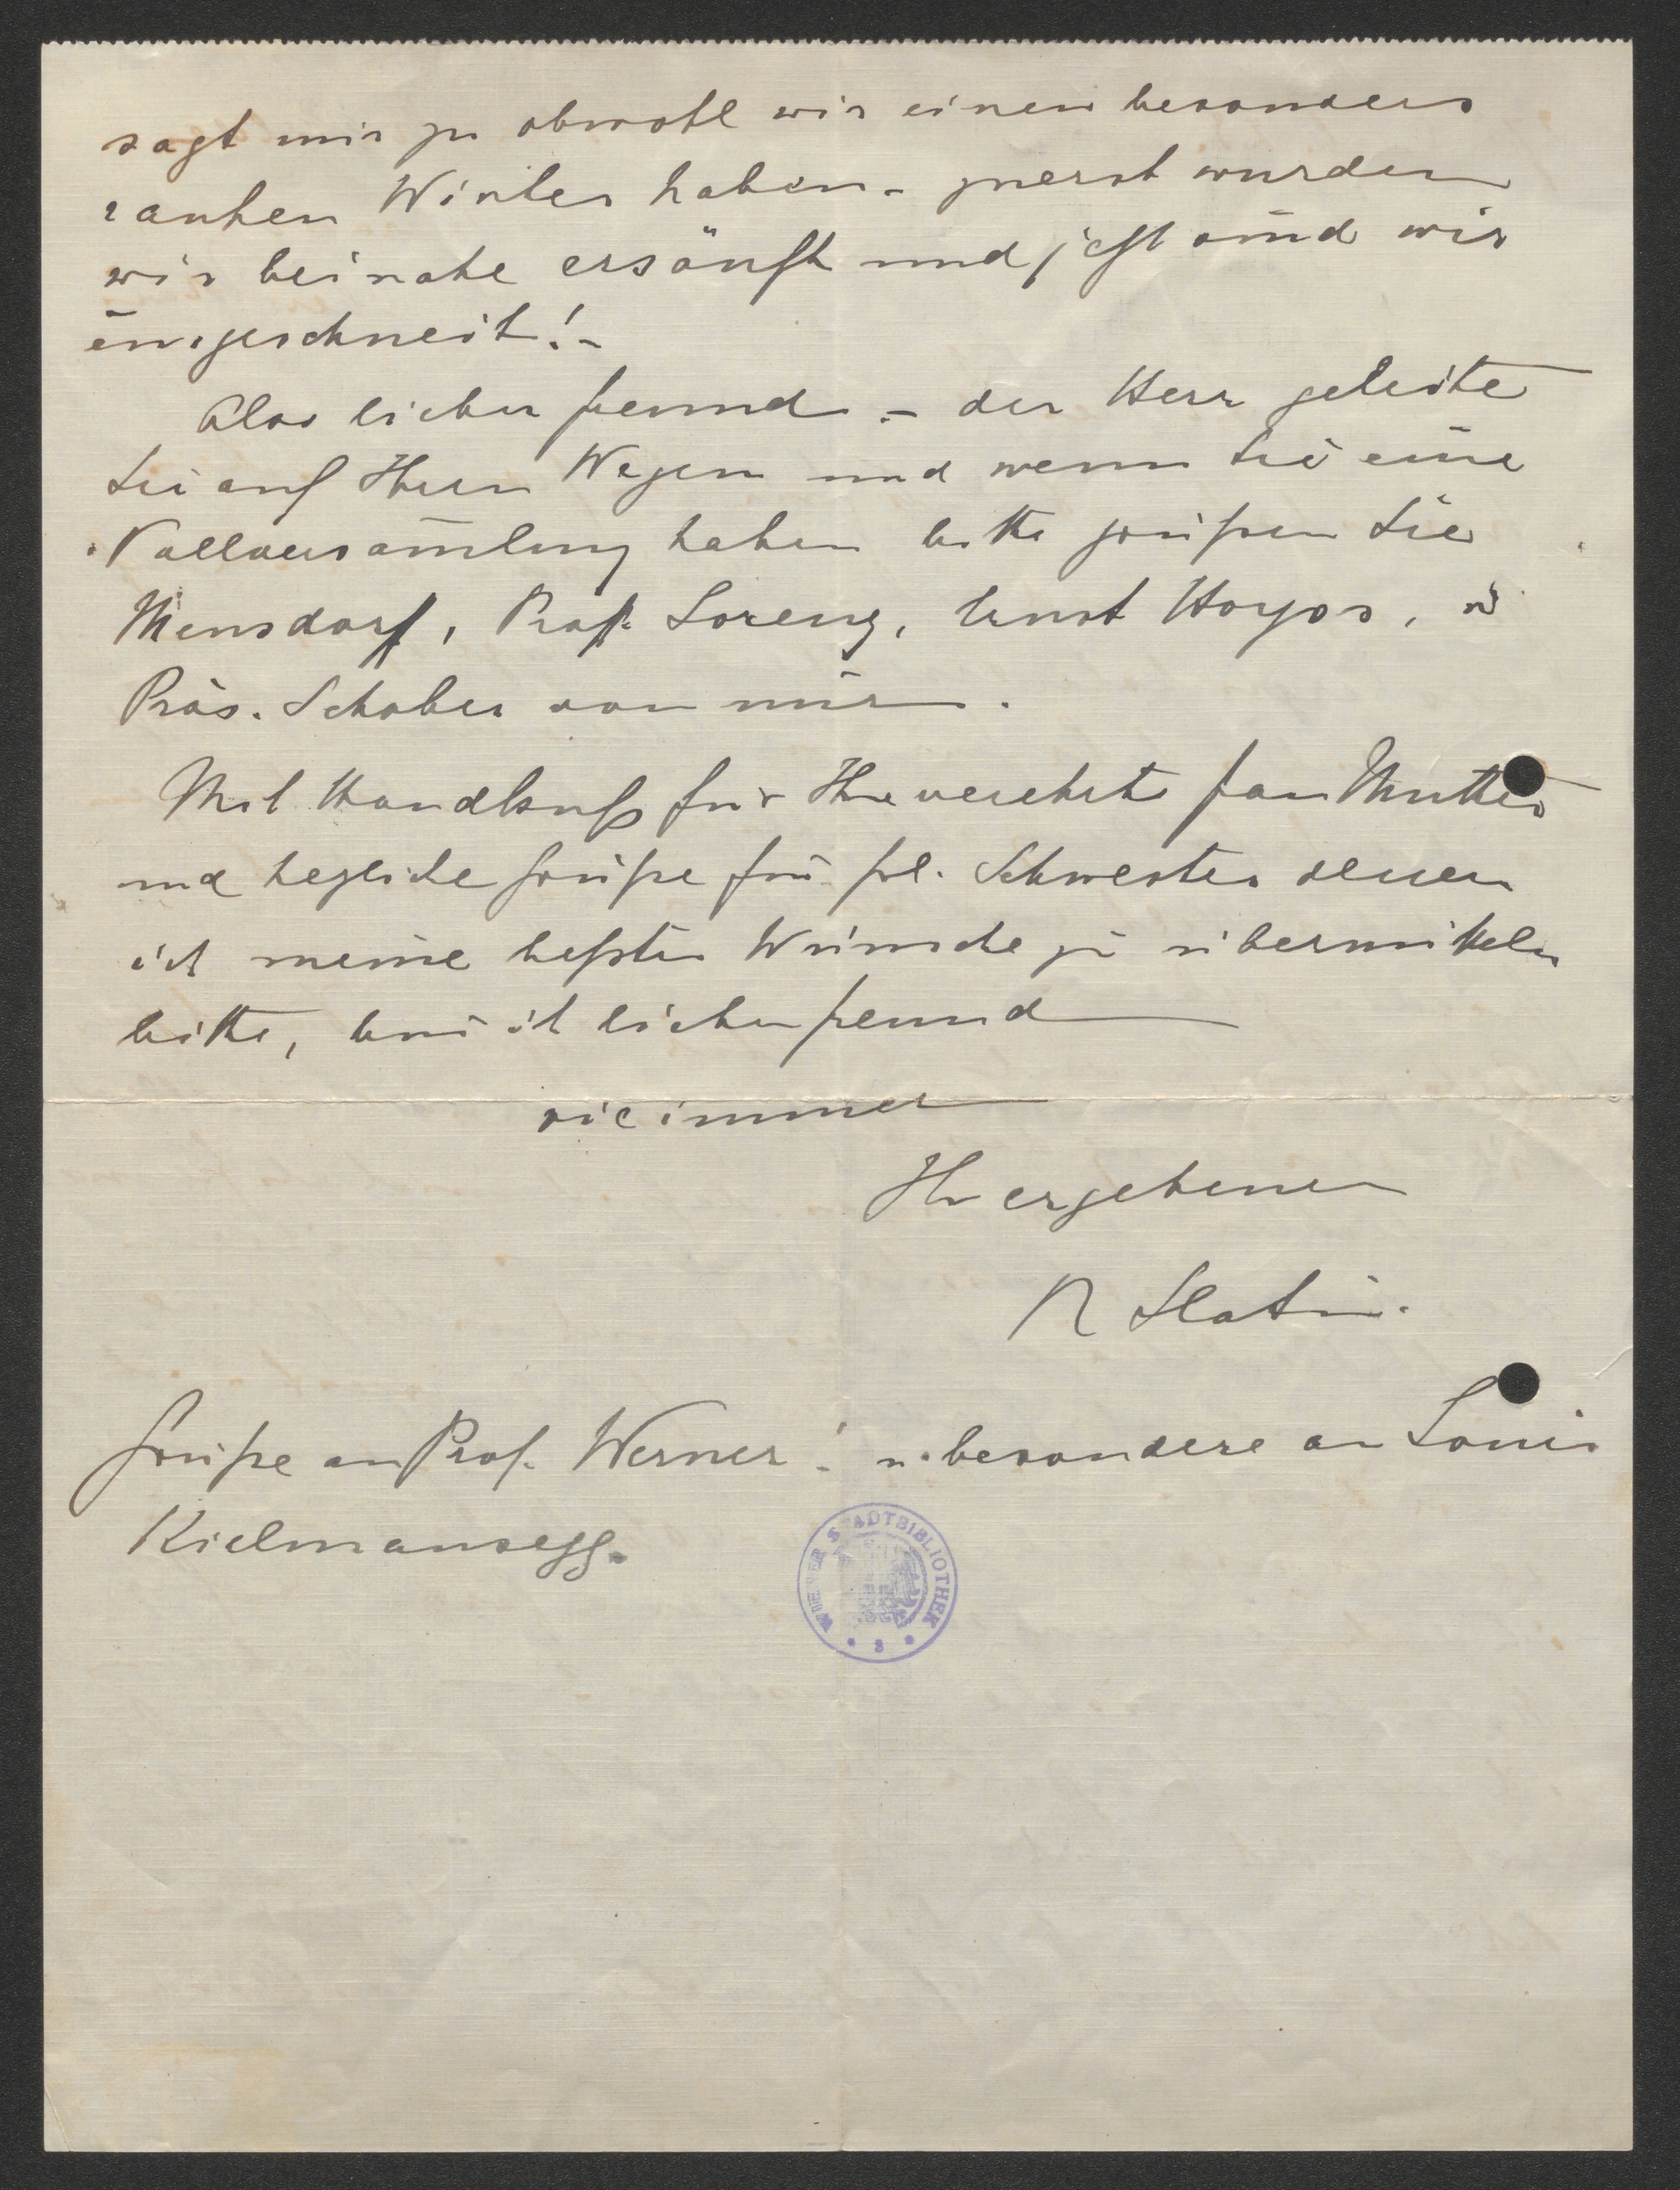 sagt mir zu obwohl wir einen besonders
rauhen Winter haben - zuerst wurden
wir beinahe ersäuft und jetzt sind wir
eingeschneit! -
Also lieber Freund - der Herr geleite
Sie auf Ihren Wegen und wenn Sie eine
Vollversam̄lung haben bitte grüßen Sie
Mensdorff, Prof. Lorenz, Ernst Hoyos, u
Präs. Schober von mir.
Mit Handkuß für Ihre verehrte Frau Mutter
und herzliche Grüße für frl. Schwester denen
ich meine beßten Wünsche zu übermitteln
bitte, bin ich lieber Freund
wie immer
Ihr ergebener
R Slatin.
Grüße an Prof. Werner! u. besondere an Louis
Kielmansegg.
WIENER STADTBIBLIOTHEK